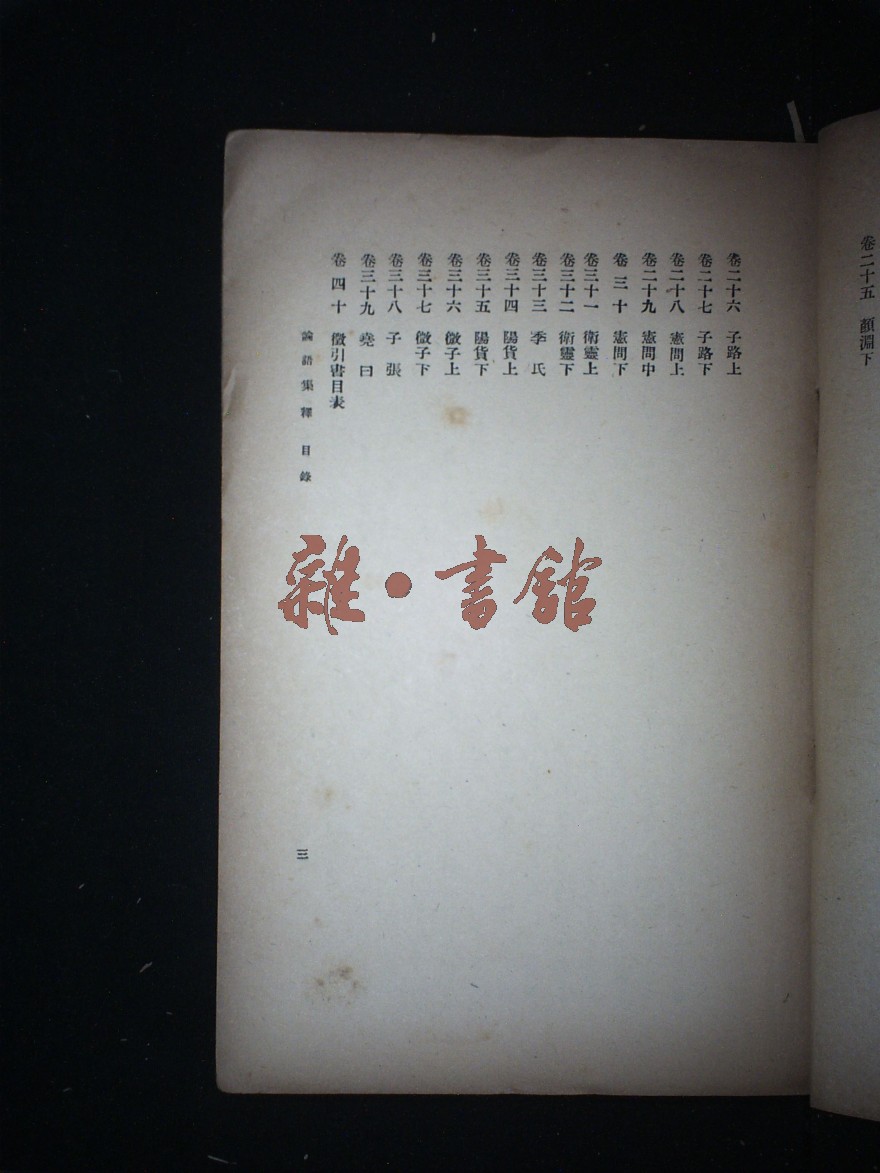 卷二十五　顏淵下
卷二十六　子路上
卷二十七　子路下
卷二十八　憲問上
卷二十九　憲問中
卷三十　憲問下
卷三十一　衛靈上
卷三十二　衛靈下
卷三十三　季氏
卷三十四　陽貨上
卷三十五　陽貨下
卷三十六　微子上
卷三十七　微子下
卷三十八　子張
卷三十九　堯曰
卷四十　徵引書目表
論語集釋　目錄
三
雜・書館